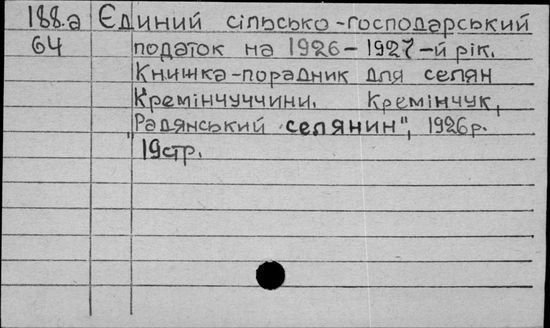 188.а Єдиний сільсько-господарський
64 податок на 1926-1927-й рік.
Книжка-порадник для селян
Кремінчуччини. Кремінчук,
"Радянський селянин", 1926р.
19стр.